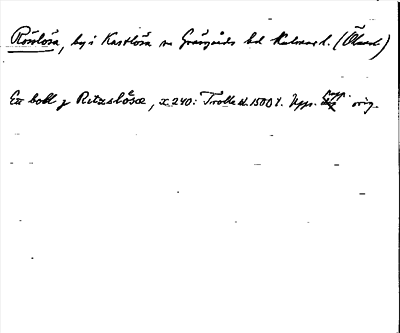 Rösslösa, by i Kastlösa sn Gräsgårds hd Kalmar l. (Öland)
Ett boll j Retzslösæ, x 240: Trolle st. 1500 t. Upps. orig.